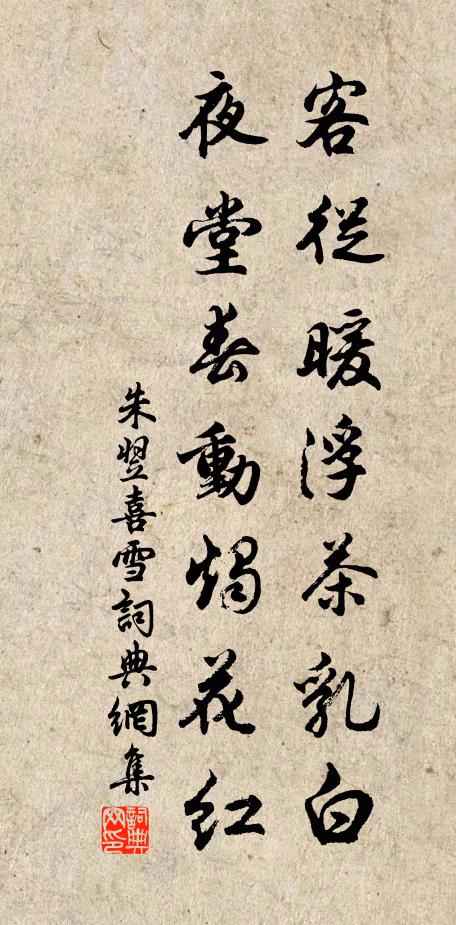 客從暖浮茶乳白
夜堂春動燭花紅
朱翌喜雪詞典網集
詞典网印